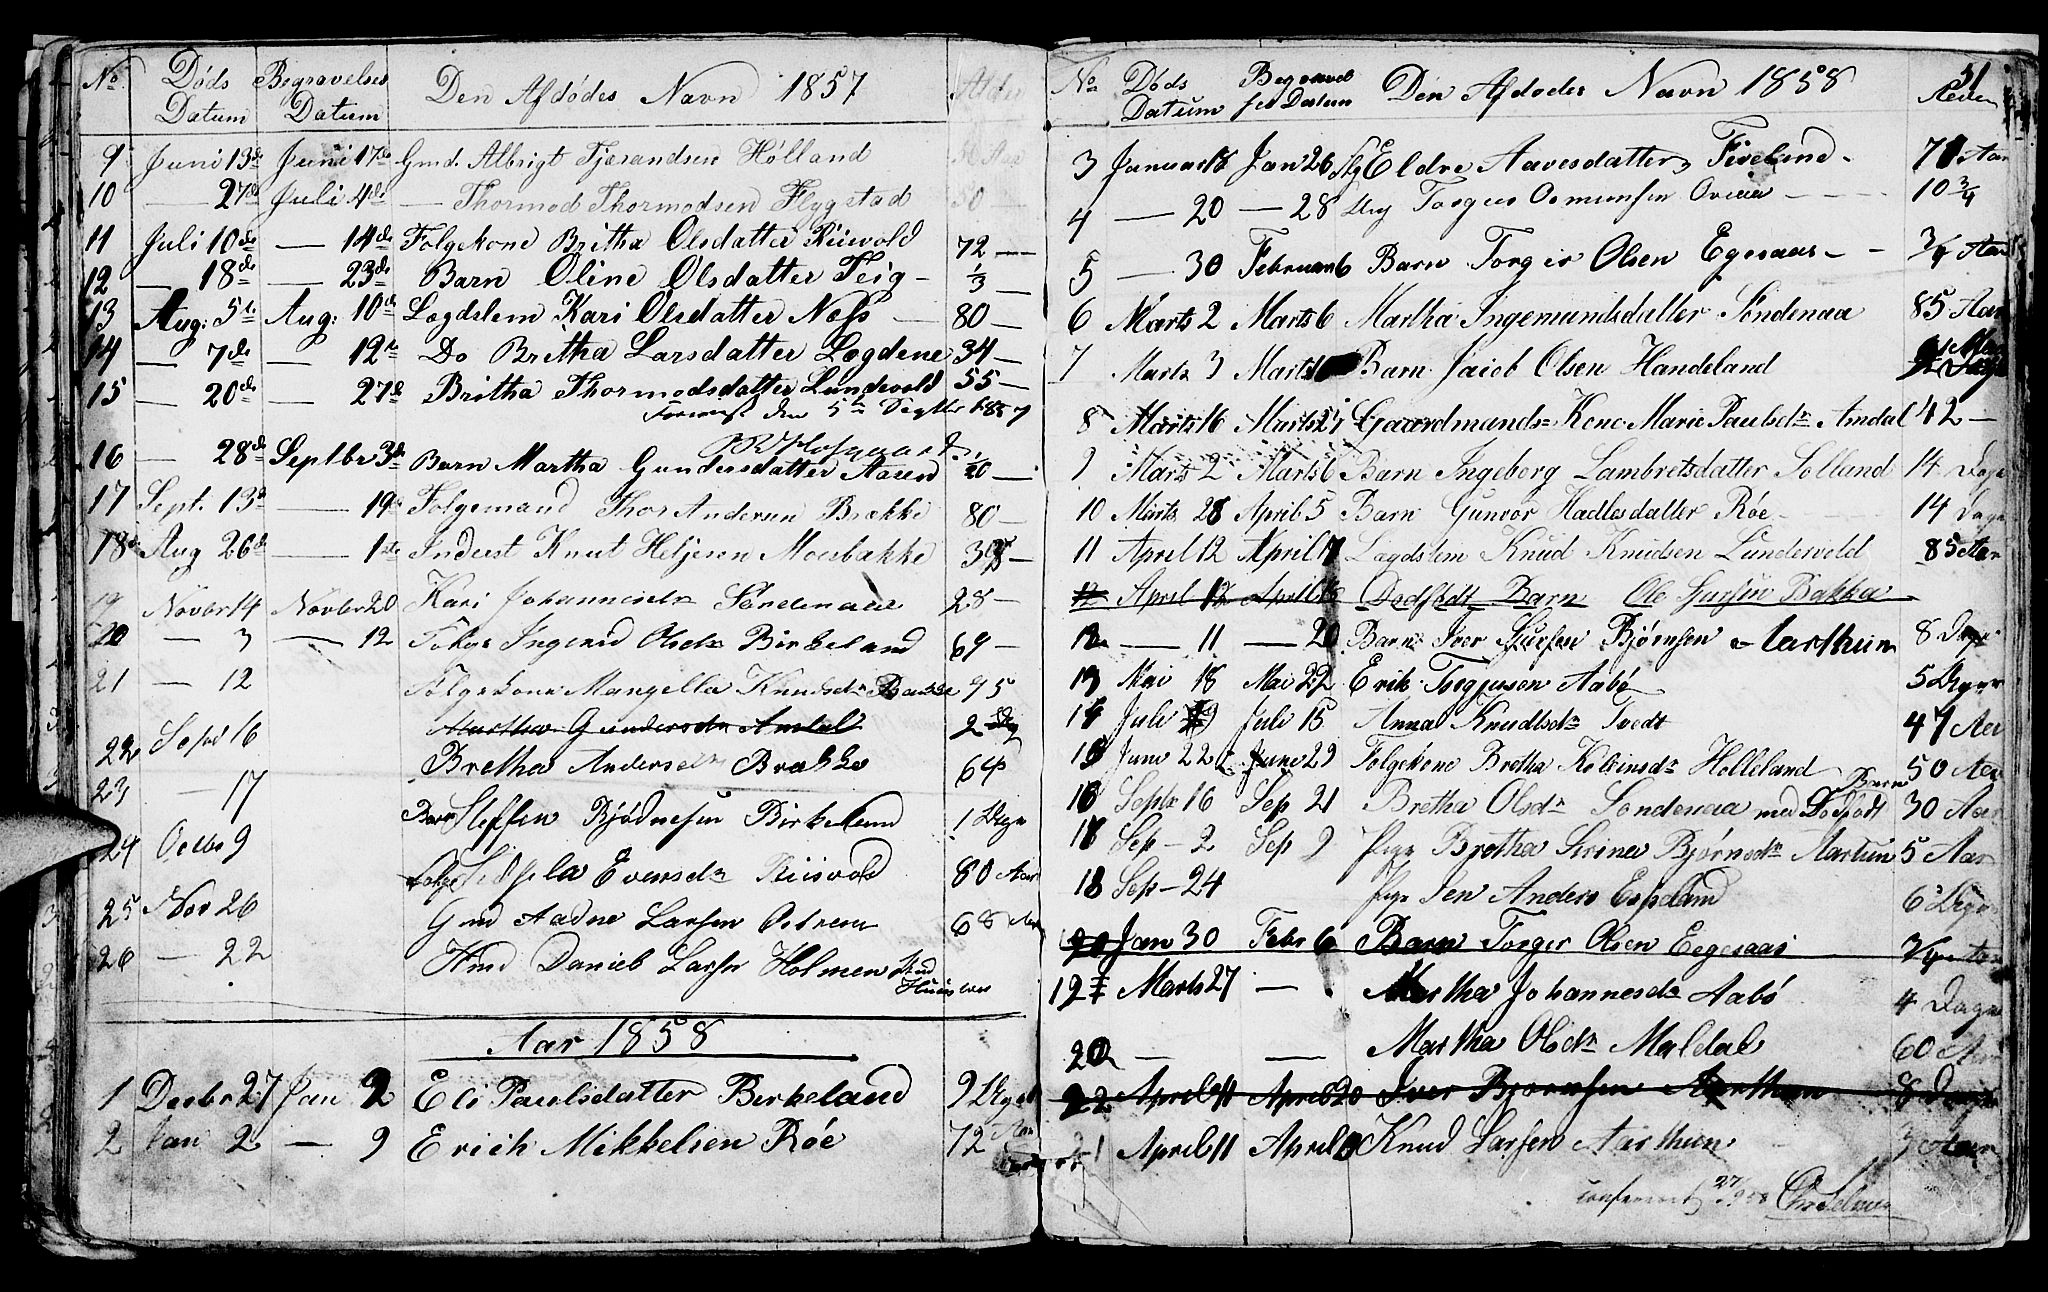 No Døds Begravelses Den Afdødes Navn 1857 Alder
Datum Datum
9 Juni 13de Juni 17de Gmd. Albrigt Tjerandsen Hølland
10 — 27de Juli 4de — Thormod Thormodsen Flygstad 50 —
11 Juli 10de — 14de Folgekone Britha Olsdatter Riisvold 72 —
12 — 18de — 23de Barn Oline Olsdatter Teig — 1/3 —
13 Aug: 5te Aug: 10de Lægdslem Kari Olsdatter Næss — 80 —
14 — 7de — 12te Do Britha Larsdatter Lægdene 34 —
15 — 20de — 27de Britha Thormodsdatter Lundevold 55 —
den 5te Septbr 1857
16 — 28de Septbr 3de Barn Martha Gundersdatter Aaren 1/20 —
17 Sept. 13de — 19de Folgemand Thor Andersen Brække 80 —
18 Aug 26de — 1ste Inderst Knut Heljesen Moebakke —
19 Novbr 14 Novbr 20 Kari Johannesdr Søndenaae 28 —
20 — 3 — 12 Ingerid Olsdr Birkeland 69 —
21 — 12 Folgekone Mangella Knudsdr 95
Martha Gundersdr Amdal 2
22 Sept 16 Bretha Andersdr Brakke 64
23 — 17 Barn Steffen Bjødnesen Birkeland 1 Dage
24 Octbr 9 Folge Sidsela Eversdr Riisvold 80 Aar
25 Nov 26 Gmd Aadne Larsen Østrem 68 Aar
26 — 22 Hmd Daniel Larsen Holmen
Aar 1858
1 Decbr 27 Jan 2 Eli Paulsdatter Birkeland 9
2 Jan 2 — 9 Erich Mikkelsen Røe 72 Aar
51
No Døds Begravel Den Afdødes Navn 1858
Datum ses Datum
3 Januar 18 Jan 26 Eldre Aavesdatter Fiveland — 70 Aar
4 — 20 — 28 Torger Osmunsen 10 3/4
5 — 30 Februar 6 Barn Torger Olsen Egesaas — 3/4 Aar
6 Marts 2 Marts 6 Martha Ingemundsdatter Søndenaa 85 Aar
7 Marts 3 Marts Barn Jacob Olsen Handeland
8 Marts 16 Marts 27 Gaardmands Kone Marie Paulsdr Amdal 42 —
9 Marts 2 Marts 6 Barn Ingeborg Lambretsdatter Solland 14 Dage
10 Marts 28 April 5 Barn Gunvor Hadlesdatter Røe 14 Dage
11 April 12 April 17 Lægdslem Knud Knudsen Lundevold 85 Aar
12 April 12 April 18 Dødfødt Barn Ole Sjursen Bakka
12 — 11 — 20 Barn Iver Sjursen Bjørnsen Aarthun 8 Dage
13 Mai 18 Mai 22 Erik Torgjusen Aabø 5 Dager
14 Juli Juli 15 Anna Knudtsdr Tvedt 47 Aar
15 Juni 22 Juni 29 Folgekone Bretha Kolbinsdr Hølleland 50 Aar
16 Septbr 16 Sep 21 Bretha Olsdr Søndenaa med Dødfødt Barn 30 Aar
18 Sep — 2 Sep 9 Pige Bretha Serine Bjørnsdr Aartun 5 Aar
18 Sep — 24 Anders Espeland 6 Dage
20 Jan 30 Febr 6 Barn Torger Olsen Eegesaas 3/4 Aar
19 Marts 27 — Martha Johannesdr Aabø 4 Dage
20 — — Martha Olsdr Maldal 60 Aar
22 April 11 April 20 Iver Bjørnsen Aarthun 8 Dage
21 April 11 April Knud Larsen Aarthun 3 Aar
confereret 27/9 58